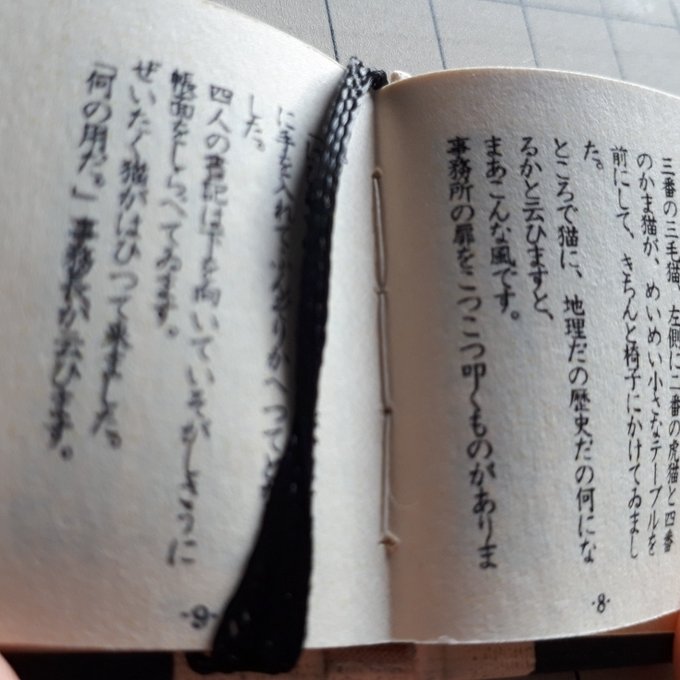 三番の三毛猫、左側に二番の虎猫と四番
のかま猫が、めいめい小さなテーブルを
前にして、きちんと椅子にかけてゐまし
た。
ところで猫に、地理だの歴史だの何にな
るかと云ひますと、
まあこんな風です。
事務所の扉をこつこつ叩くものがありま
-8-
に手を入れてふんぞりかへつてど
した。
四人の書記は下を向いていそがしさうに
帳面をしらべてゐます。
ぜいたく猫がはひつて来ました。
「何の用だ。」事務長が云ひます。
-9-